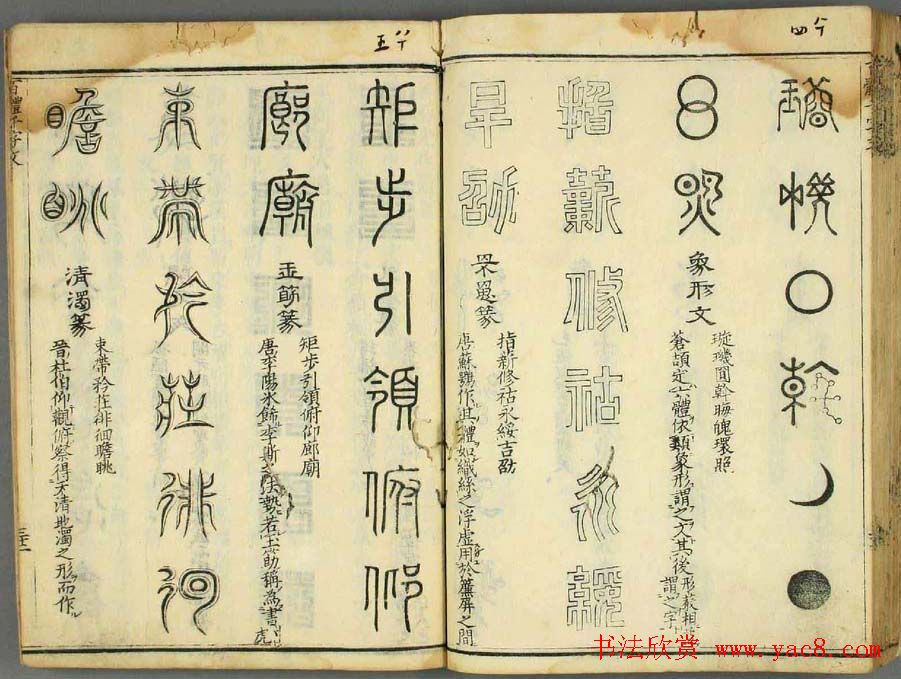 璇璣
斡
環照
象形文
璇璣斡晦魄環照
蒼頡定六體依類象形謂之文其後形義相謂之字
指薪修祜永綏
吉劭
罘罳篆
指薪修祜永綏吉劭
唐蘇鶚作其體如織絲之浮虛用於簾屏之間
矩步引領俯仰
廊廟
玉筯篆
矩步引領俯仰廊廟
唐李陽氷飾李斯之法勢若玉筯稱為書虎
束帶矜莊徘徊
瞻眺
清濁篆
束帶矜莊徘徊瞻眺
晉杜伯仰觀俯察得天清地濁之形而作
百體千字文
书法欣赏 www.yac8.com